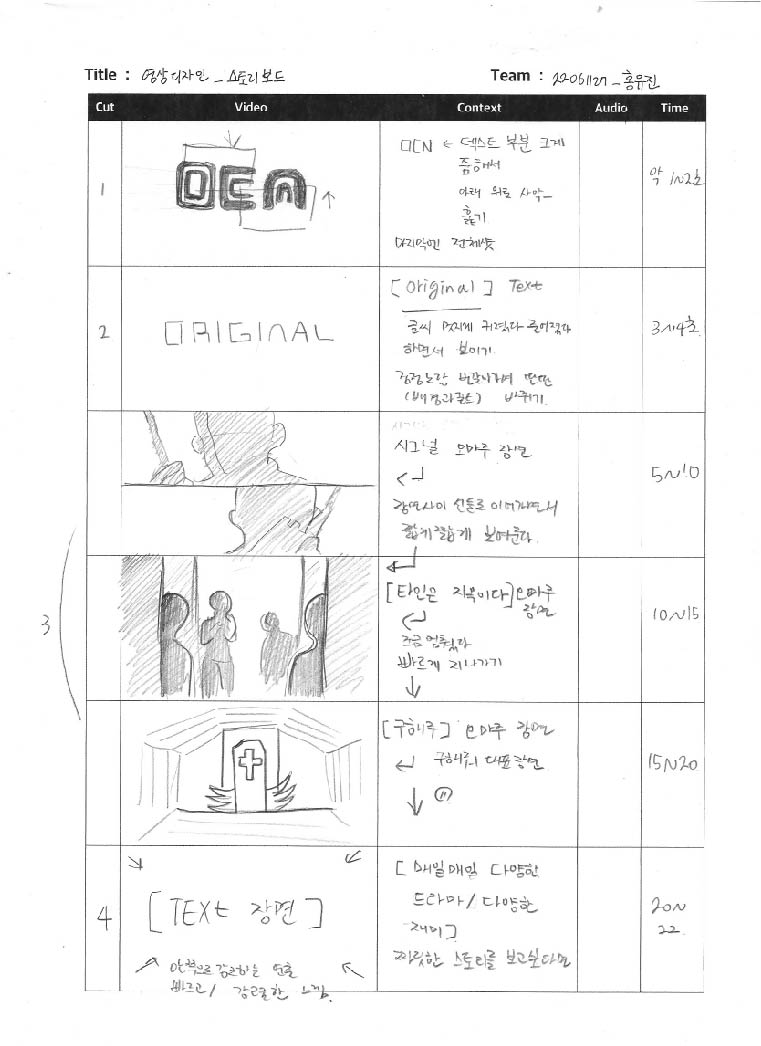 Title : 영상디자인 _ 스토리보드
Team : 22051127 _ 홍유진
Cut Video Context Audio Time
1
OCN
OCN ← 텍스트 부분 크게
줌해서
아래 위로 샤악~
훑기
마지막엔 전체샷
약 1~2초
2
ORIGINAL
[Original] Text
글씨 멋지게 커졌다 줄어졌다
하면서 보이기.
검정노랑 번갈아가며 딴딴
(배경과 폰트) 바뀌기.
3~4초
3
시그널 오마주 장면
장면사이 선들로 이어지면서
짧게짧게 보여준다.
5~10
[타인은 지옥이다] 오마주
장면
조금 멈췄다
빠르게 지나가기
10~15
[구해줘] 오마주 장면
구해줘의 대표장면
15~20
4
[TEXt 장면]
안쪽으로 감소하는 연출
빠르고/ 강렬한 느낌.
[매일매일 다양한
드라마/ 다양한
재미]
짜릿한 스토리를 보고싶다면
20~
22.